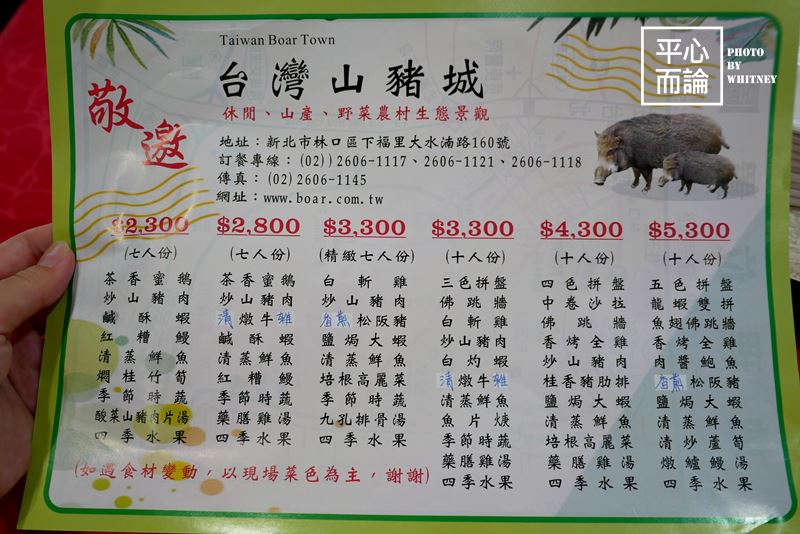 Taiwan Boar Town
台灣山豬城
敬邀
休閒、山產、野菜農村生態景觀
地址：新北市林口區下福里大水湳路160號
訂餐專線：(02))2606-1117、2606-1121、2606-1118
傳真：(02)2606-1145
網址：www.boar.com.tw
平心而論
PHOTO
BY
WHITNEY
$2,300
(七人份)
茶香蜜鵝
炒山豬肉
鹹酥蝦
紅糟鰻
清蒸鮮魚
燜桂竹筍
季節時蔬
酸菜山豬肉片湯
四季水果
$2,800
(七人份)
茶香蜜鵝
炒山豬肉
清燉牛雜
鹹酥蝦
清蒸鮮魚
紅糟鰻
季節時蔬
藥膳雞湯
四季水果
$3,300
(精緻七人份)
白斬雞
炒山豬肉
香蕉松阪豬
鹽焗大蝦
清蒸鮮魚
培根高麗菜
季節時蔬
九孔排骨湯
四季水果
$3,300
(十人份)
三色拼盤
佛跳牆
白斬雞
炒山豬肉
白灼蝦
清燉牛雜
清蒸鮮魚
魚片焿
季節時蔬
藥膳雞湯
四季水果
$4,300
(十人份)
四色拼盤
中卷沙拉
佛跳牆
香烤全雞
炒山豬肉
桂香豬肋排
鹽焗大蝦
清蒸鮮魚
培根高麗菜
藥膳雞湯
四季水果
$5,300
(十人份)
五色拼盤
龍蝦雙拼
魚翅佛跳牆
香烤全雞
肉醬鮑魚
香蕉松阪豬
鹽焗大蝦
清蒸鮮魚
清炒蘆筍
燉鱸鰻湯
四季水果
(如遇食材變動，以現場菜色為主，謝謝)